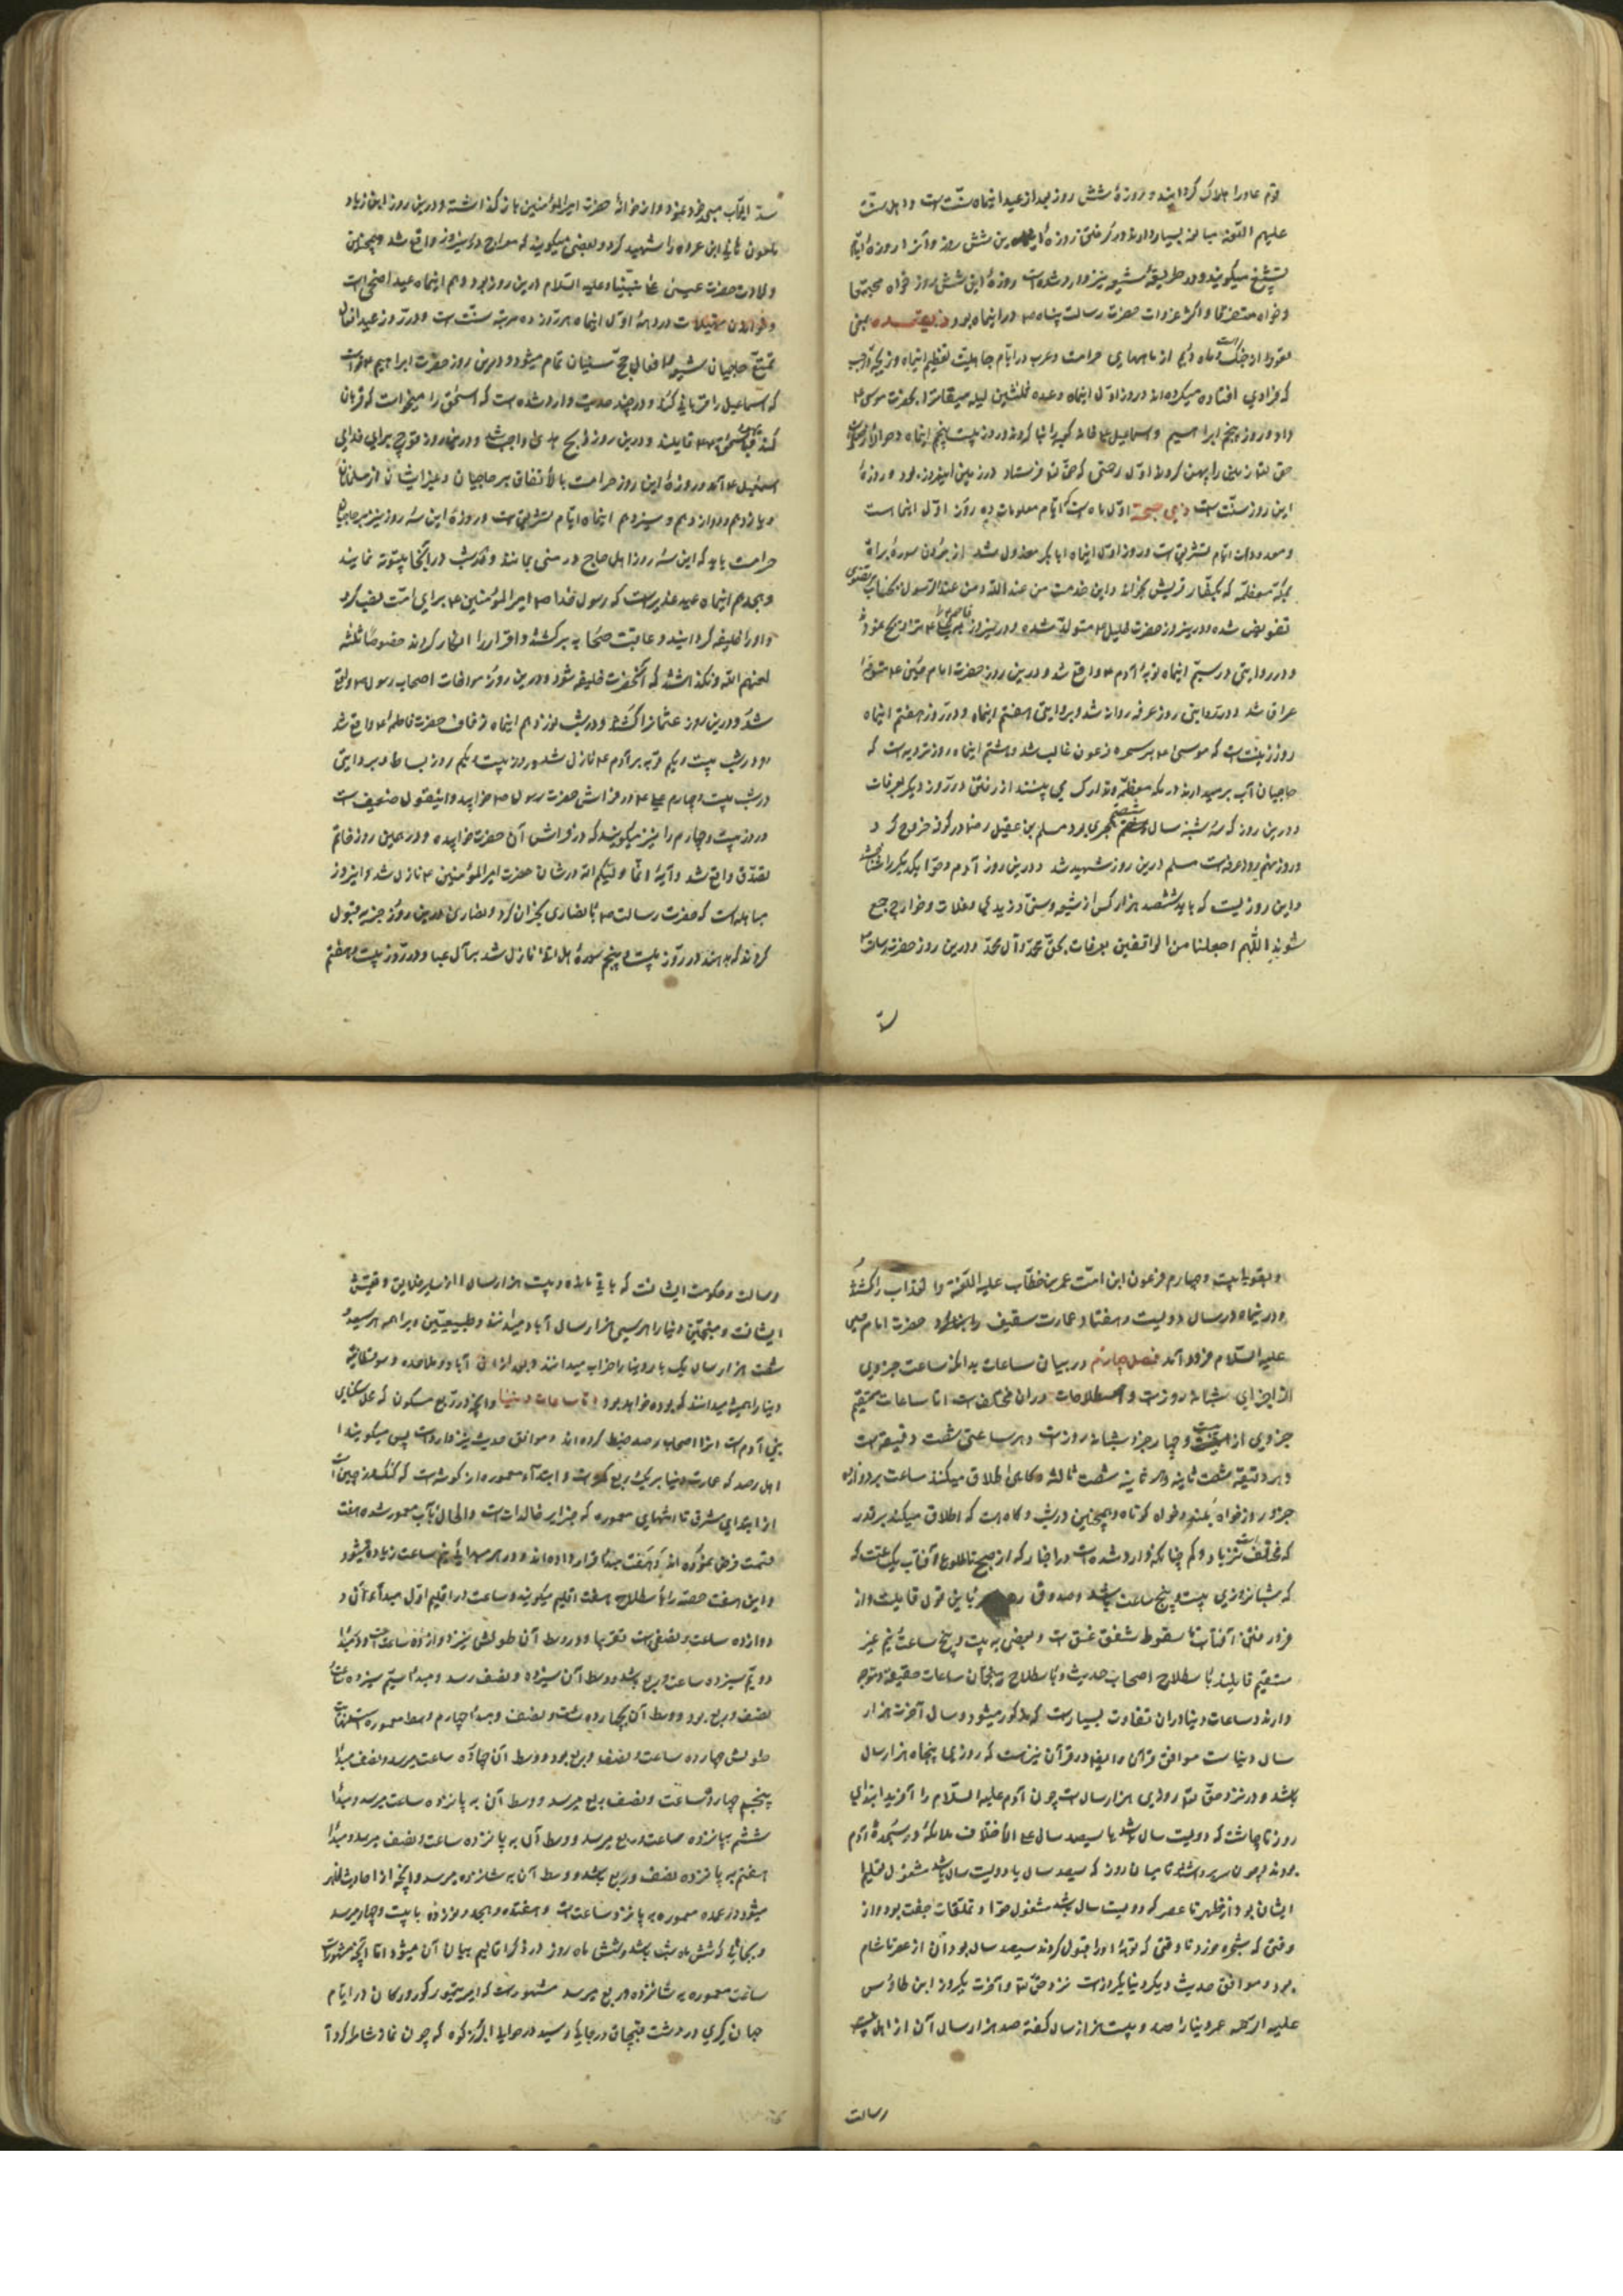 قوم عاد را هلاک گردانید و روزهٔ شش روز بعد از عید اینماه سنت است و اهل سنت
علیهم اللعنه مبالغه بسیار دارند در گرفتن روزه این شش روز و آنرا روزهٔ ایام
میگویند و در طریقهٔ شیعه نیز وارد شده است روزهٔ این شش روز خواه مجتمعا
و خواه متفرقا و اکثر غزوات حضرت رسالت پناه در اینماه بود ذی قعده یعنی
قعود از جنک و ماه از ماههای حرامست و عرب در ایام جاهلیت تعظیم اینماه و ذیحجه و رجب
میکرده‌اند و روز اول اینماه وعده ثلثین لیله میقات را بحضرت موسی
داد و روز پنجم ابراهیم و اسماعیل خانه کعبه را بنا کردند و روز بیست پنجم اینماه
حق تعالی زمین را پهن کرد و اول رحمتی که حق تعالی فرستاد در زمین اینروز بود و روزهٔ
این روز سنت است ذی حجه اول ماه است که ایام معلومات ده روز اول اینماست
و معدودات ایام تشریق است و روز اول اینماه ابابکر معزول شد از بردن سورهٔ براة
بمکه معظمه که بکفار قریش بخواند و این خدمت من عند الله و من عند الرسول بجناب مرتضوی
تفویض شده و در ینروز حضرت خلیل متولد شده و در ینروز تزویج نمود
و در روایتی در سیم اینماه توبهٔ آدم واقع شد و درین روز حضرت امام حسین متوجه
عراق شد و در روایتی روز عرفه روانه شد و بروایتی هفتم اینماه و در روز هفتم اینماه
روز زینت است که موسی بر سحره فرعون غالب شد و هشتم اینماه روز ترویه است که
حاجیان آب بر میدارند در مکه معظمه و تدارک می بینند از رفتن در روز دیگر بعرفات
و درین روز که سه شنبه سال شصتم هجری بود مسلم بن عقیل رضا در کوفه خروج کرد
و روز نهم روز عرفه است مسلم درین روز شهید شد و درین روز آدم و حوا یکدیگر را شناختند
و این روز یست که باید ششصد هزار کس از شیعه و سنی و زیدی و غلات و خوارج جمع
شوند اللهم اجعلنا من الواقفین بعرفات بحق محمد و آل محمد و درین روز حضرت رسالت
سد ابواب مسجد خود نمود و در خانهٔ حضرت امیر المؤمنین باز گذاشته و درین روز ابن زیاد
ملعون هانی ابن عروه را شهید کرد و بعضی میگویند که معراج درینروز واقع شد و همچنین
ولادت حضرت عیسی علی نبینا و علیه السلام درین روز بود و دهم اینماه عید اضحی است
و خواندن تهلیلات در دههٔ اول اینماه هر روز ده مرتبه سنت است و در روز عید افعال
تمتع حاجیان شیعه و افعال حج سنیان تمام میشود و درین روز حضرت ابراهیم خواست
که اسماعیل را قربانی کند و در چند حدیث وارد شده است که اسحق را میخواست که قربان
کند قایلند و درین روز ذبح هدی واجب شد و درین روز قوچ برای فدای
اسمعیل آمد و روزهٔ این روز حرامست بالاتفاق بر حاجیان و غیر ایشان از مسلمانان
و یازدهم و دوازدهم و سیزدهم اینماه ایام تشریق است و روزهٔ این سه روز نیز بر حاجیان
حرامست باید که این سه روز اهل حاج در منی بمانند و در شب در آنجا بیتوته نمایند
و هجدهم اینماه عید غدیر است که رسول خدا امیر المؤمنین برای امت نصب کرد
و او را خلیفه گردانید و عاقبت صحابه برگشتند و اقرار را انکار کردند خصوصا ثلثه
لعنهم الله و نگذاشتند که آنحضرت خلیفه شود و درین روز مواخات اصحاب رسول واقع
شد و درین روز عثمان را کشتند و در شب نوزدهم اینماه زفاف حضرت فاطمه واقع شد
و در شب بیست و یکم توبه بر آدم نازل شد و روز بیست و یکم روز بساط و بروایتی
در شب بیست و چهارم علی در فراش حضرت رسول خوابید و اینقول ضعیف است
و روز بیست و چهارم را نیز میگویند که در فراش آن حضرت خوابیده و در همین روز خاتم
تصدق واقع شد و آیهٔ انما ولیکم الله در شان حضرت امیر المؤمنین نازل شد و اینروز
مباهله است که حضرت رسالت با نصاری نجران کرد و نصاری درین روز جزیه قبول
کردند که بدهند و در روز بیست و پنجم سورهٔ هل اتی نازل شد بر آل عبا و در روز بیست و هفتم
و بقولی بیست و چهارم فرعون این امت عمر بن خطاب علیه اللعنة و العذاب را کشتند
و در اینماه در سال دویست و هفتاد عمارت سقیف حضرت امام
علیه السلام فرود آمد فصل چهارم در بیان ساعات بدانکه ساعت جزوی
از اجزای شبانه روزست و اصطلاحات در ان مختلف است اما ساعات مستقیم
جزوی از بیست و چهار جزو شبانه روز است و هر ساعتی شصت دقیقه است
و هر دقیقه شصت ثانیه و هر ثانیه شصت ثالثه و گاهی اطلاق میکنند ساعت بر دوازده
جزو روز خواه بلند و خواه کوتاه و همچنین در شب و گاه است که اطلاق میکنند بر قدر
که مختلف است بزیاد و کم چنانکه وارد شده است در اخبار که از صبح تا طلوع آفتاب یک ساعتست که
که شبانروزی بیست و پنج ساعت باشد و صدوق باین قول قایلست و از
فرو رفتن آفتاب تا سقوط شفق غسق است و بعضی به بیست و پنج ساعت نیم غیر
مستقیم قایلند باصطلاح اصحاب حدیث و باصطلاح منجمان ساعات حقیقی و معوج
دارند و ساعات دنیا در ان تفاوت بسیارست که مذکور میشود و سال آخرت هزار
سال دنیاست موافق قرآن و ایضا در قرآن نیز هست که روزی پنجاه هزار سال
باشد و در نزد حق تعالی روزی هزار سالست چون آدم علیه السلام را آفرید ابتدای
روز تا چاشت که دویست سال باشد یا سیصد سال علی الاختلاف ملائکه در سجدهٔ آدم
بودند چون سر برداشتند تا میان روز که سیصد سال یا دویست سال باشد مشغول تعلیم
ایشان بود از ظهر تا عصر که دویست سال باشد مشغول حوا و تعلقات جفت بود و از
وقتی که شجره خورد تا وقتی که توبهٔ او را قبول کردند سیصد سال بود آن از عصر تا شام
بود و موافق حدیث دیگر دنیا یکروز است نزد حق تعالی و آخرت یکروز ابن طاوس
علیه الرحمه عمر دنیا را صد و بیست هزار سال گفته صد هزار سال آن از اهل بیت
رسالت
رسالت و حکومت ایشانست که باقی مانده و بیست هزار سال از سایر خلایق و
ایشانست و منجمین دنیا را هر سیصی هزار سال آباد میدانند و طبیعیین و براهمه هر سیصد
شصت هزار سال یک بار دنیا را خراب میدانند و بعد از ان آباد و ملاحده و سوفسطائیه
دنیا را همیشه میدانند که بوده خواهد بود اما ساعات دنیا و آنچه در ربع مسکون که محل سکنای
بنی آدم است انرا اصحاب رصد ضبط کرده اند و موافق حدیث نیز وارد است پس میگویند
اهل رصد که عمارت دنیا بر یک ربع کره است و ابتدا معموره از گوشه است که کنک دز چین است
از ابتدای مشرق تا انتهای معموره که جزایر خالدات است و الحال بآب معمور شده هفت
قسمت فرض نموده اند و هفت مبدأ قرار داده اند و در هر مبدأ نیم ساعت زیاده میشود
و این هفت حصه را باصطلاح هفت اقلیم میگویند و ساعت در اقلیم اول مبدأ آن
دوازده ساعت و نصفی است تقریبا و در وسط آن طولش نیز دوازده ساعت و مبدأ
دویم سیزده ساعت و ربع باشد و وسط آن سیزده و نصف رسد و مبدأ سیم سیزده ساعت
نصف و ربع بود و وسط آن بچهارده ساعت و نصف و مبدأ چهارم وسط معموره است
طولش چهارده ساعت و نصف و ربع بود و وسط آن چهارده ساعت میرسد و نصف مبدأ
پنجم چهارده ساعت و نصف ربع میرسد و وسط آن به پانزده ساعت میرسد و مبدأ
ششم بپانزده ساعت و ربع میرسد و وسط آن به پانزده ساعت و نصف میرسد و مبدأ
هفتم به پانزده نصف و ربع باشد و وسط آن به شانزده میرسد و آنچه از احادیث ظاهر
میشود در عمده معموره به پانزده ساعت است و هفتده و هجده و نوزده تا بیست و چهار میرسد
و بجائی که شش ماه شب باشد و شش ماه روز در ذکر اقالیم بیان آن میشود اما آنچه مشهورست
ساعت معموره به شانزده و ربع میرسد مشهورست که امیر تیمور کورکان در ایام
جهان گیری در دشت قبچاق در جایکه رسید در حوالی البرز کوه که چون نماز شام کرد